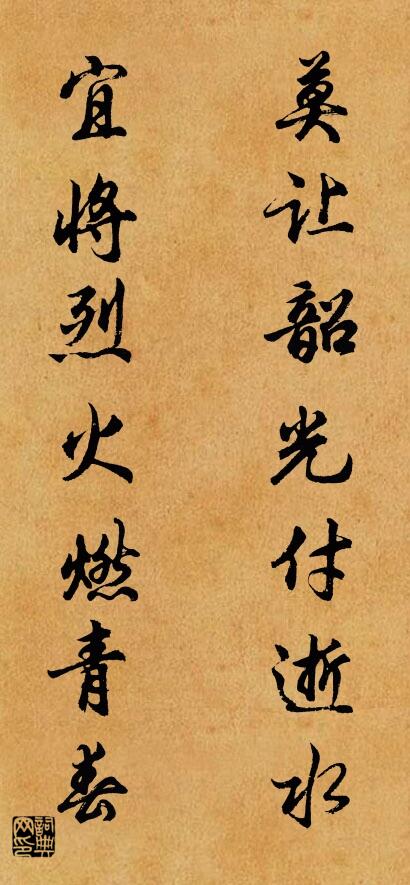 莫让韶光付逝水
宜将烈火燃青春
詞典网印